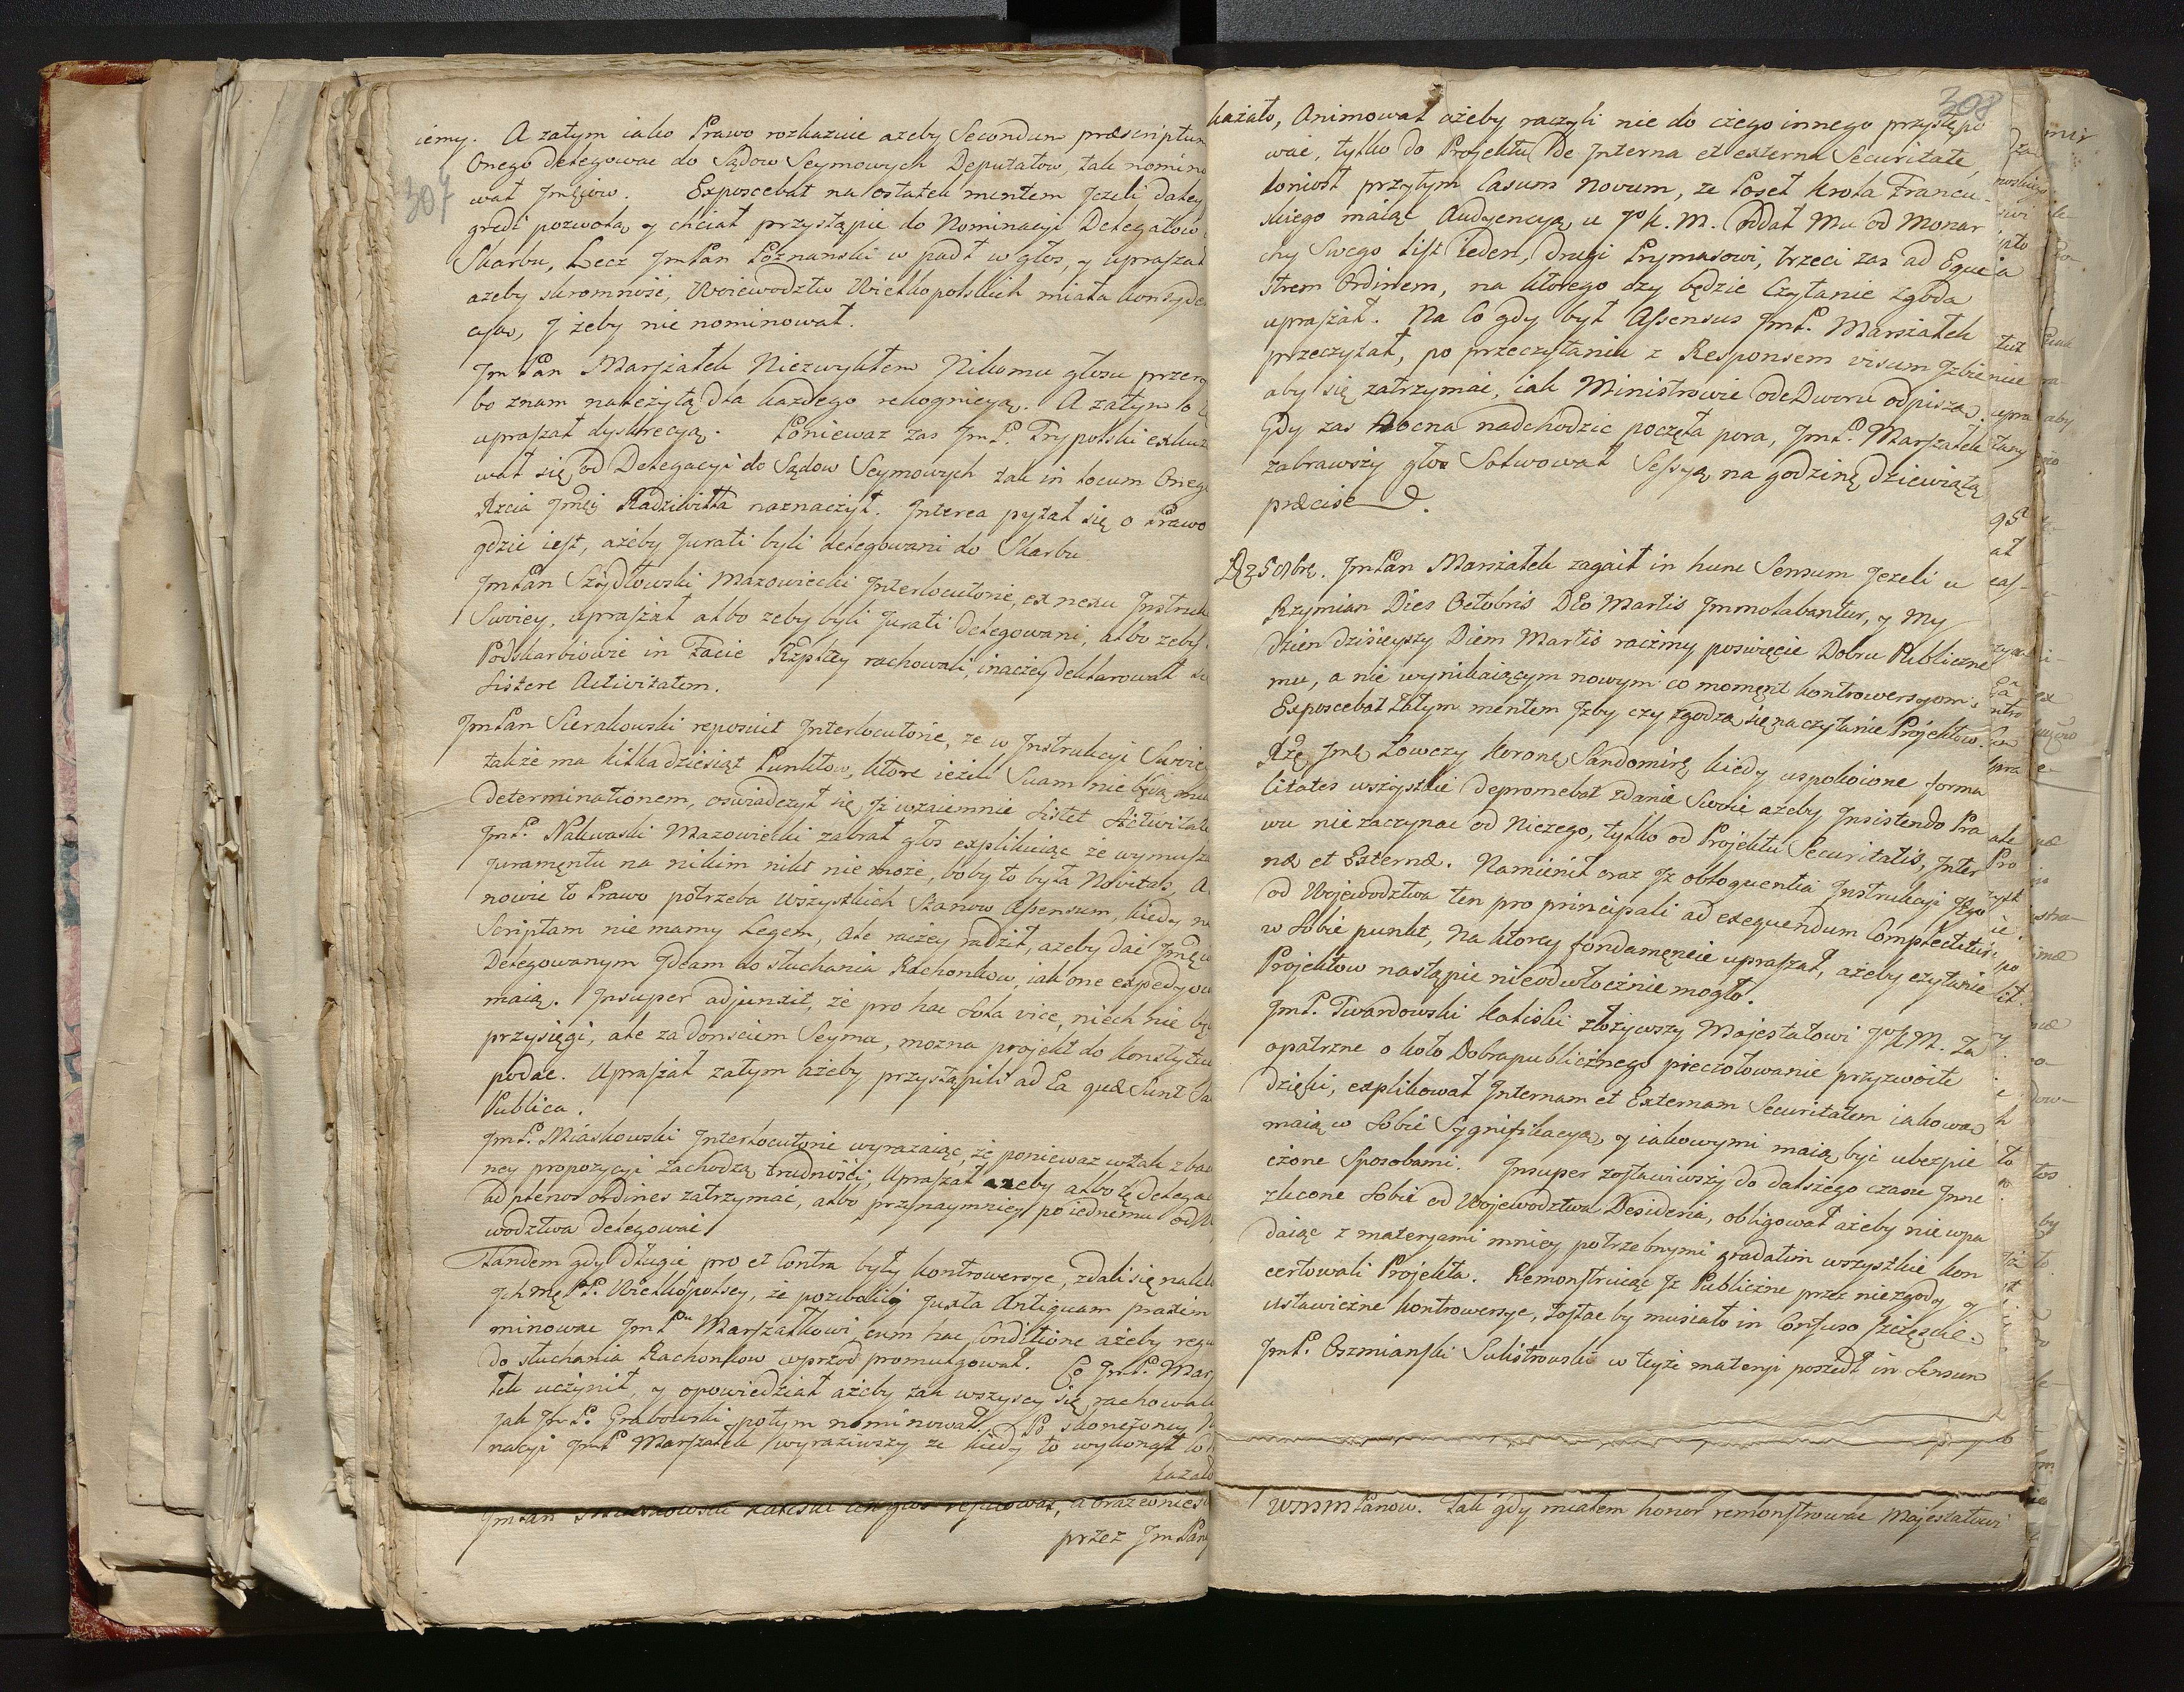 307
iemy. A zatym iako Prawo rozkazuie ażeby Secondum præscriptum
Onego delegowac do Sądow Seymowych Deputatow, tak nomino
wał Jmćiow. Exposcebat na ostatek mentem Jeżeli daley
gredi pozwolą y chciał przystąpic do Nominacyi Delegatow
Skarbu, Lecz JmPan Poznanski w padł w głos, y upraszał
ażeby skromność, Woiewodztw Wielkopolskich miała konsyde
cyą, y żeby nie nominował.
JmPan Marszałek Niezwykłem Nikomu głosu przery
bo znam należytą dla każdego rekognicyą. A zatym o
upraszał dyskrecyą. Poniewaz zas JmP. Trypolski exkuz
wał się od Delegacyi do Sądow Seymowych tak in locum Onego
Xcia Jmći Radziwiłła naznaczył. Interea pytał się o Prawo
gdzie iest, ażeby Jurati byli delegowani do Skarbu
JmPan Szydłowski Mazowiecki Interlocutorie, ex nexu Instruk
Swoiey, upraszał albo zeby byli Jurati delegowani, albo zeby
Podskarbiowie in Facie Rzpltey rachowali, inaczey deklarował
sistere Activitatem.
JmPan Sierakowski reposuit Interlocutorie, ze w Instrukcyi Swoie
także ma kilkadziesiąt Punktow, ktore ieżeli Suam nie
determinationem, oswiadczył się Jż wzaiemnie sistet Activitate
JmP. Nakwaski Mazowiecki zabrał głos explikuiąc że wymusza
Juramentu na nikim nikt nie może, boby to była Novitas, A
nowie to Prawo potrzeba wszystkich Stanow Assensum, kiedy
Scriptam nie mamy Legem, ale raczey radził, ażeby dać Jmći
Delegowanym Ideam do słuchania Rachonkow, iak one expedyow
maią. Insuper adjunxit, że pro hac sola vice, niech nie
przysięgi, ale za donściem Seymu, mozna projekt do Konstytu
podac. Upraszał zatym ażeby przystąpili ad Ea quæ Sunt
Publica.
JmP. Miaskowski Interlocutorie wyrazaiąc, że poniewaz w tak
ney propozycyi zachodzą trudności, Upraszał azeby albo tę delega
ad plenos ordines zatrzymać, albo przynaymniey po iednemu od
wodztwa delegować
Tandem gdy długie pro et Contra były kontrowersye, zdali się
JchMć PP. Wielkopolscy, że pozwolili Juxta Antiquam praxim
minować JmPnu Marszałkowi, cum hac Conditione ażeby
do słuchania Rachonkow wprzod promulgował. Co JmP. Mar
łek uczynił, y opowiedział ażeby tak wszyscy się rachowali
Jak JmP. Grabowski potym nominował. Po skonczoney
nacyi JmP Marszałek wyraziwszy ze kiedy to wykonał
kazało
przez JmPan
308
kazało, Animował ażeby raczyli nie do czego innego przystępo
wać, tylko do Projektu De Interna et externa Securitate,
doniosł przytym Casum Novum, ze Poseł Krola Francu-
skiego maiąc Audyencyą u JoK.M. oddał Mu od Monar
chy Swego List ieden, drugi Prymasowi, trzeci zas ad Eque
strem Ordinem, na ktorego czy będzie Czytanie zgoda
upraszał. Na Co gdy był Assensus JmP. Marszałek
przeczytał, po przeczytaniu z Responsem visum Jzbie
aby się zatrzymać, iak Ministrowie ode Dworu odpiszą.
Gdy zas Nocna nadchodzic poczęła pora, JmP. Marszałek
zabrawszy głos Solwował Sessyą na godzinę dziewiątą
præcise.
D. 25 8bris. JmPan Marszałek zagaił in hunc Sensum Jezeli u
Rzymian Dies Octobris Deo Martis Jmmolabantur, y My
dzien dzisieyszy Diem Martis raczmy poswięcic Dobru Publiczne
mu, a nie wynikaiącym nowym co moment kontrowersyom.
Exposcebat zatym mentem Jzby czy zgodzą się na czytanie Projektow.
Xże Jmć Łowczy Koronny Sandomirski kiedy uspokoione forma
litates wszystkie depromebat zdanie Swoie ażeby Insistendo Pra
wu nie zaczynac od Niczego, tylko od Projektu Securitatis, Inter
næ et Externæ. Namienił oraz Jż obloquentia Instrukcyi Jego
od Wojewodztwa ten pro principali ad exequendum Complectitur
w Sobie punkt, Na ktorey fondamęncie upraszał, ażeby czytanie
Projektow nastąpic nieodwłocznie mogło.
JmP. Twardowski Kaliski złożywszy Majestatowi JoK.M. Za
opatrzne o koło Dobra publicznego pieczołowanie przyzwoite
dzięki, explikował Internam et Externam Securitatem iakową
maią w Sobie Sygnifikacyą, y iakowymi maią być ubezpie
czone Sposobami. Insuper zostawiwszy do dalszego czasu Jnne
zlecone Sobie od Wojewodztwa Desideria, obligował ażeby nie wpa
daiąc z materyami mniey potrzebnymi gradatim wszystkie kon
certowali Projekta. Remonstruiąc Jż Publiczne przez niezgody y
ustawiczne kontrowersye, zostac by musiało in Confuso szczęscie.
JmP. Oszmianski Sulistrowski w teyże materyi poszedł in Sensum
WMMPanow. Tak gdy miałem honor remonstrowac Majestatowi